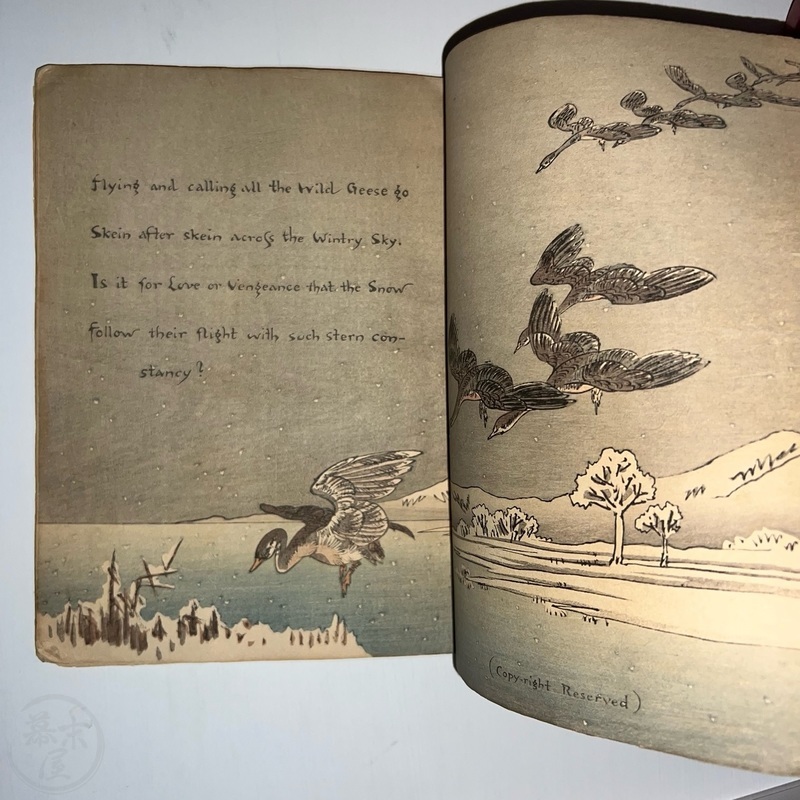 Flying and calling all the Wild Geese go
Skein after skein across the Wintry Sky.
Is it for Love or Vengeance that the Snow
Follow their flight with such stern con-
stancy?
(Copy-right Reserved)